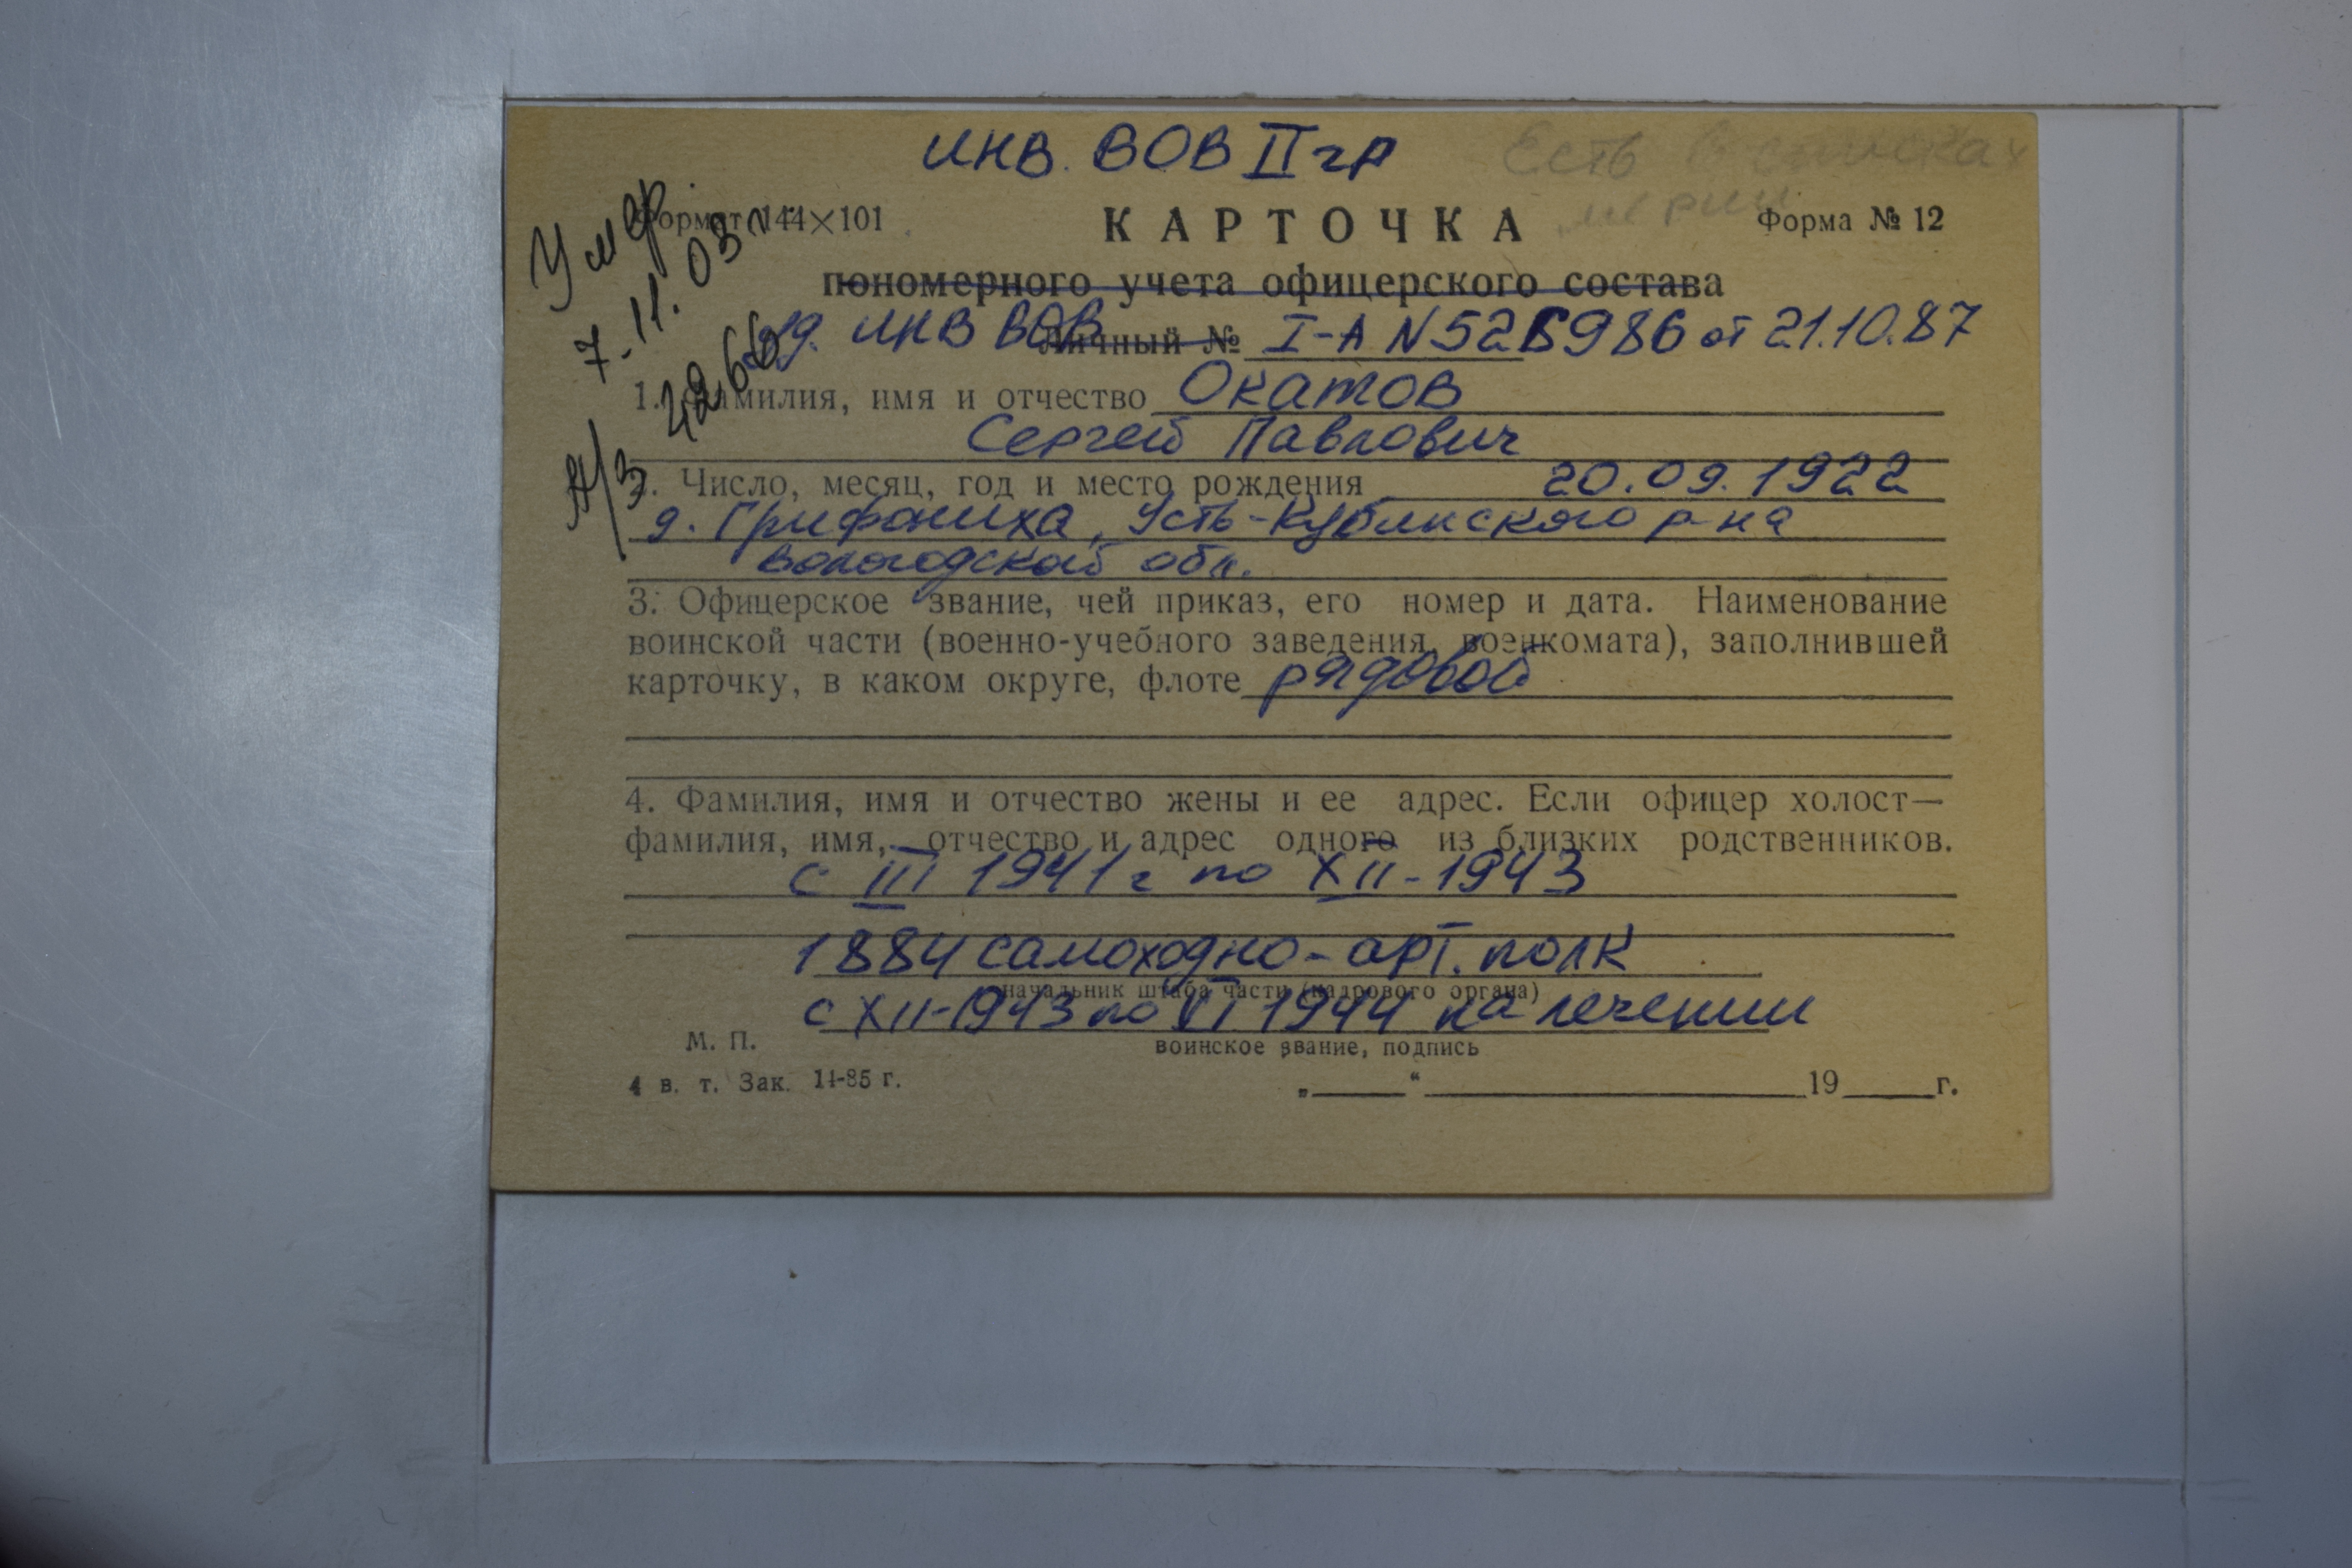 инв. ВОВ II гр
Есть в списках
мерии
Умер
7.11.03 г.
А/З 4266
Формат 144×101
КАРТОЧКА
Форма № 12
пономерного учета офицерского состава
уд. инв ВОВ Личный № I-А N 526986 от 21.10.87
1. Фамилия, имя и отчество Окатов
Сергей Павлович
2. Число, месяц, год и место рождения 20.09.1922
д. Грифониха, Усть-Кубинского р-на
Вологодской обл.
3. Офицерское звание, чей приказ, его номер и дата. Наименование
воинской части (военно-учебного заведения, военкомата), заполнившей
карточку, в каком округе, флоте рядовой
4. Фамилия, имя и отчество жены и ее адрес. Если офицер холост—
фамилия, имя, отчество и адрес одного из близких родственников.
с III 1941 г по XII-1943
1884 самоходно-арт. полк
начальник штаба части (кадрового органа)
с XII-1943 по VI 1944 на лечении
М. П.
воинское звание, подпись
4 в. т. Зак. 11-85 г.
„ “ 19 г.